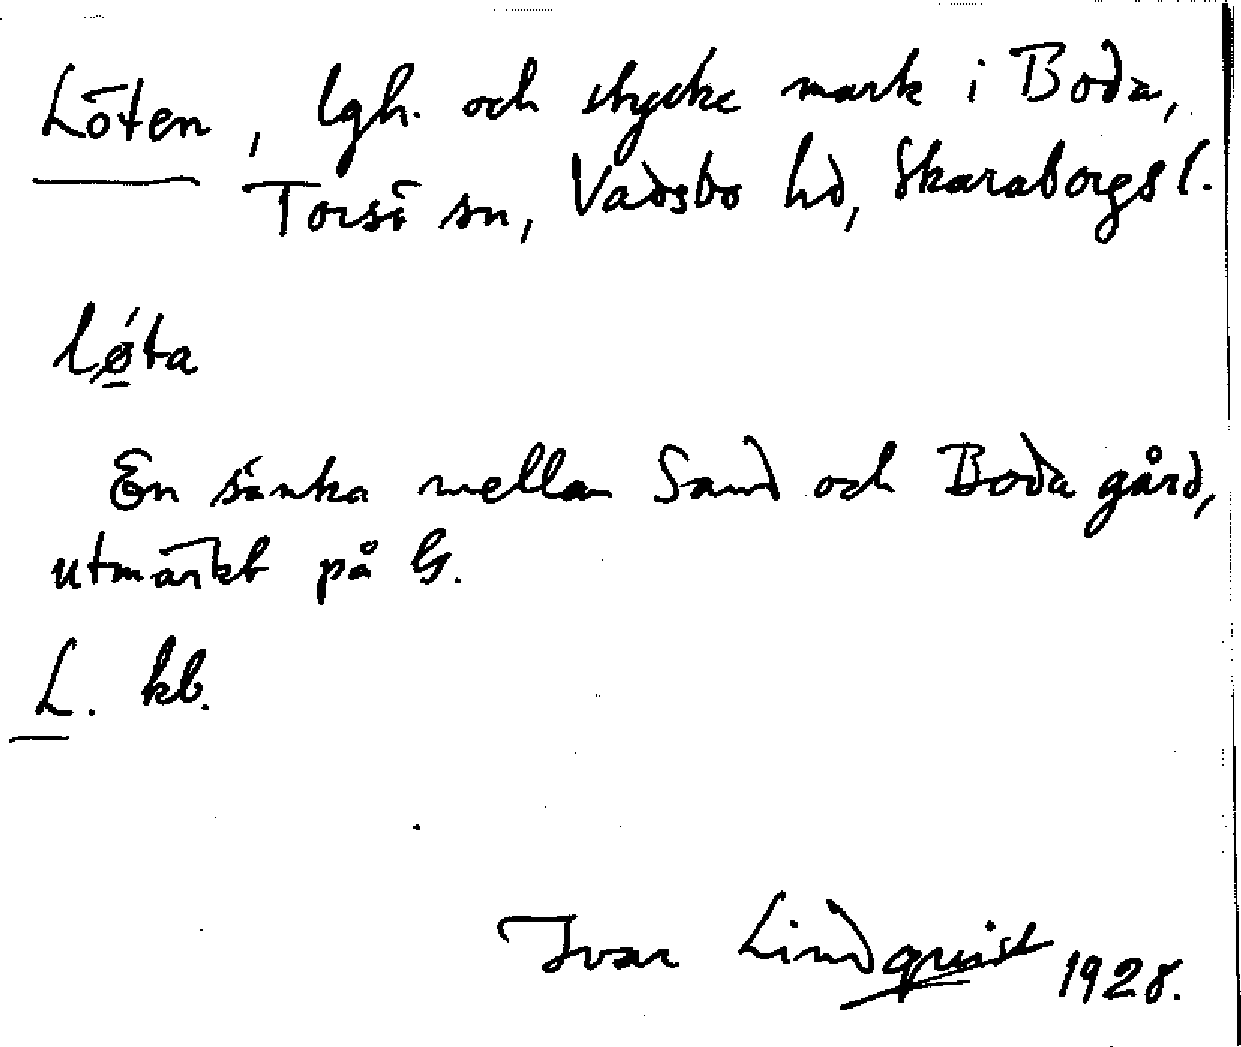 Löten, lgh. och stycke mark i Boda,
Torsö sn, Vadsbo hd, Skaraborgs l.
lǿta
En sänka mellan Sand och Boda gård,
utmärkt på G.
L. kb.
Ivar Lindquist 1928.